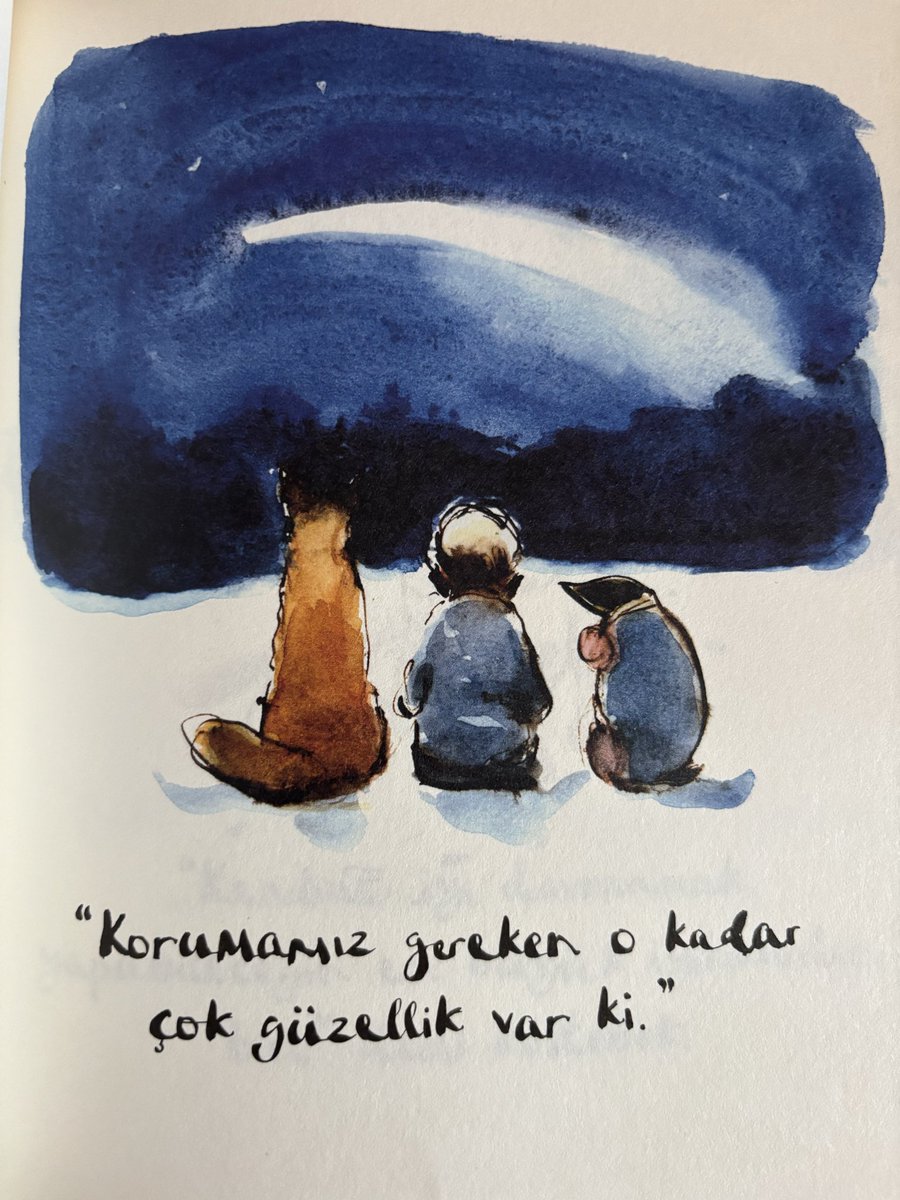 “Korumamız gereken o kadar
çok güzellik var ki.”